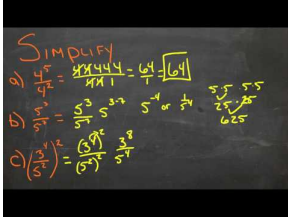 SIMPLIFY
a) 4⁵/4² = 4·4·4·4·4/4·4·1 = 64/1 = 64
b) 5³/5⁷ = 5³/5⁷ 5³⁻⁷ 5⁻⁴ or 1/5⁴
5·5 5·5
25 · 25
625
c) (3⁴/5²)² = (3⁴)²/(5²)² 3⁸/5⁴